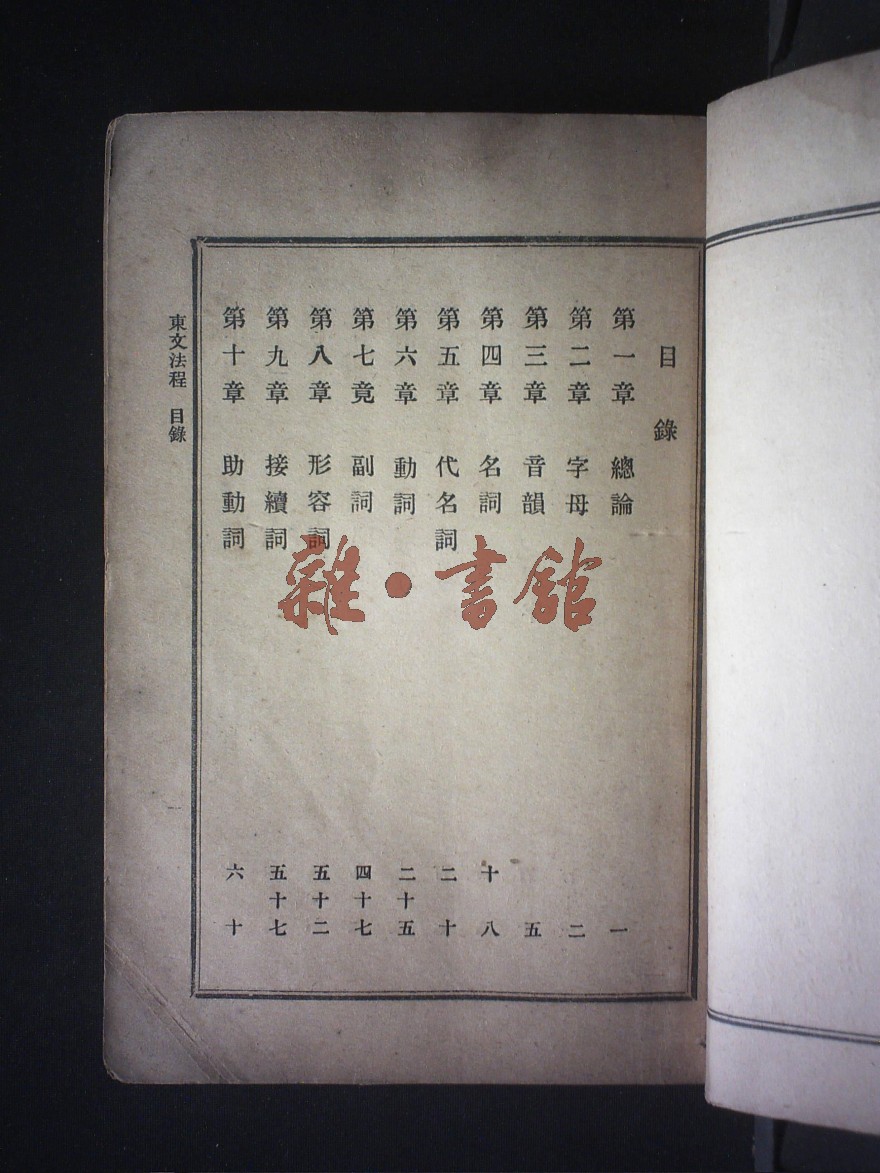 目錄
第一章 總論 一
第二章 字母 二
第三章 音韻 五
第四章 名詞 十八
第五章 代名詞 二十
第六章 動詞 二十五
第七竟 副詞 四十七
第八章 形容詞 五十二
第九章 接續詞 五十七
第十章 助動詞 六十
東文法程 目錄
雜·書館